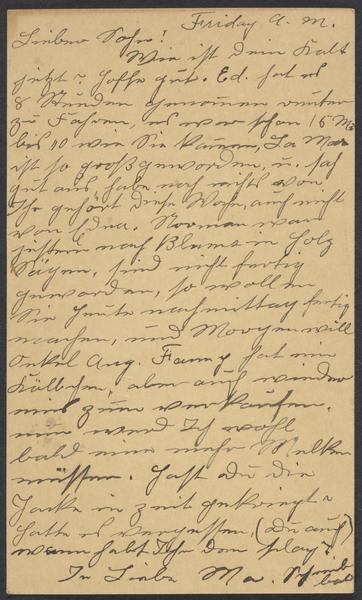 Friday A. M.
Lieber Sohn!
Wie ist dein Kalt
jetzt? hoffe gut. Ed. hat es
8 Stunden genommen runter
zu Fahren, es war schon 15 M
bis 10 wie Sie kamen, La Mar
ist so groß geworden, u. sah
gut aus, habe noch nichts von
Ihr gehört diese Woche, auch nicht
von Edna. Norman war
gestern nach Blums in Holz
Sägen, sind nicht fertig
geworden, so wollen
Sie heute nachmittag fertig
machen, und Morgen will
Onkel Aug. Fanny hat ein
Kälbchen, aber auch wieder
eins zum verkaufen.
nun werd Ich wohl
bald eine mehr Melken
müssen. hast du die
Jacke in zeit gekriegt?
hatte es vergessen, (du auch)
wann habt Ihr den play?
In Liebe Ma. Schreib
bald